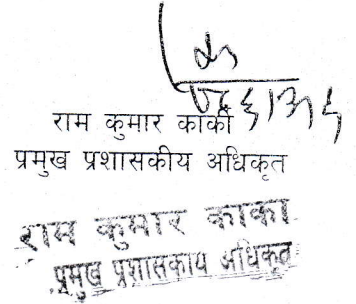 राम कुमार कार्की
प्रमुख प्रशासकीय अधिकृत
राम कुमार काका
प्रमुख प्रशासकाय अधिकृत